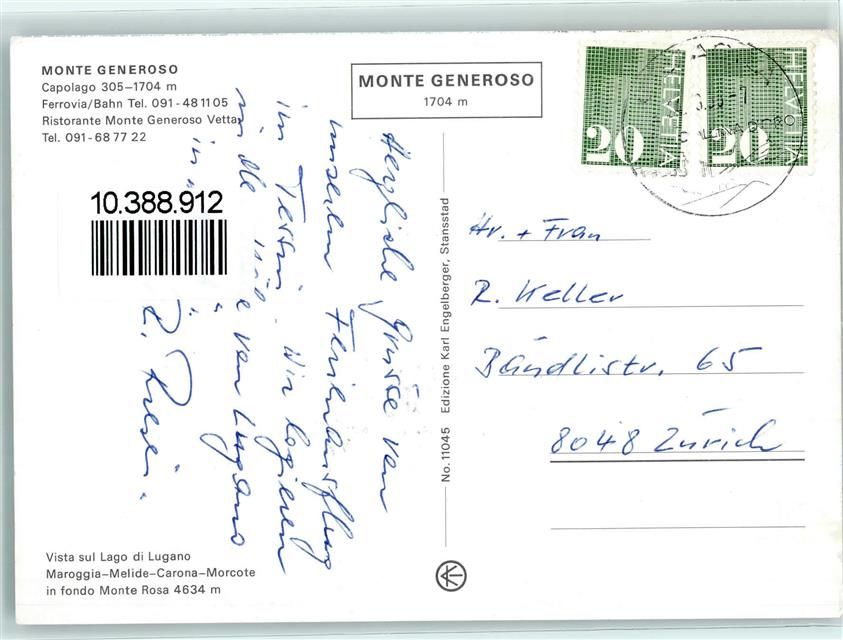 MONTE GENEROSO
Capolago 305–1704 m
Ferrovia/Bahn Tel. 091-48 11 05
Ristorante Monte Generoso Vetta
Tel. 091-68 77 22
MONTE GENEROSO
1704 m
HELVETIA
20
HELVETIA
20
10.388.912
Herzliche Grüsse von
unserem Ferienausflug
im Tessin. Wir logieren
von Lugano
in
Hr. + Frau
R. Keller
Bändlistr. 65
8048 Zürich
No. 11045 Edizione Karl Engelberger, Stansstad
Vista sul Lago di Lugano
Maroggia–Melide–Carona–Morcote
in fondo Monte Rosa 4634 m